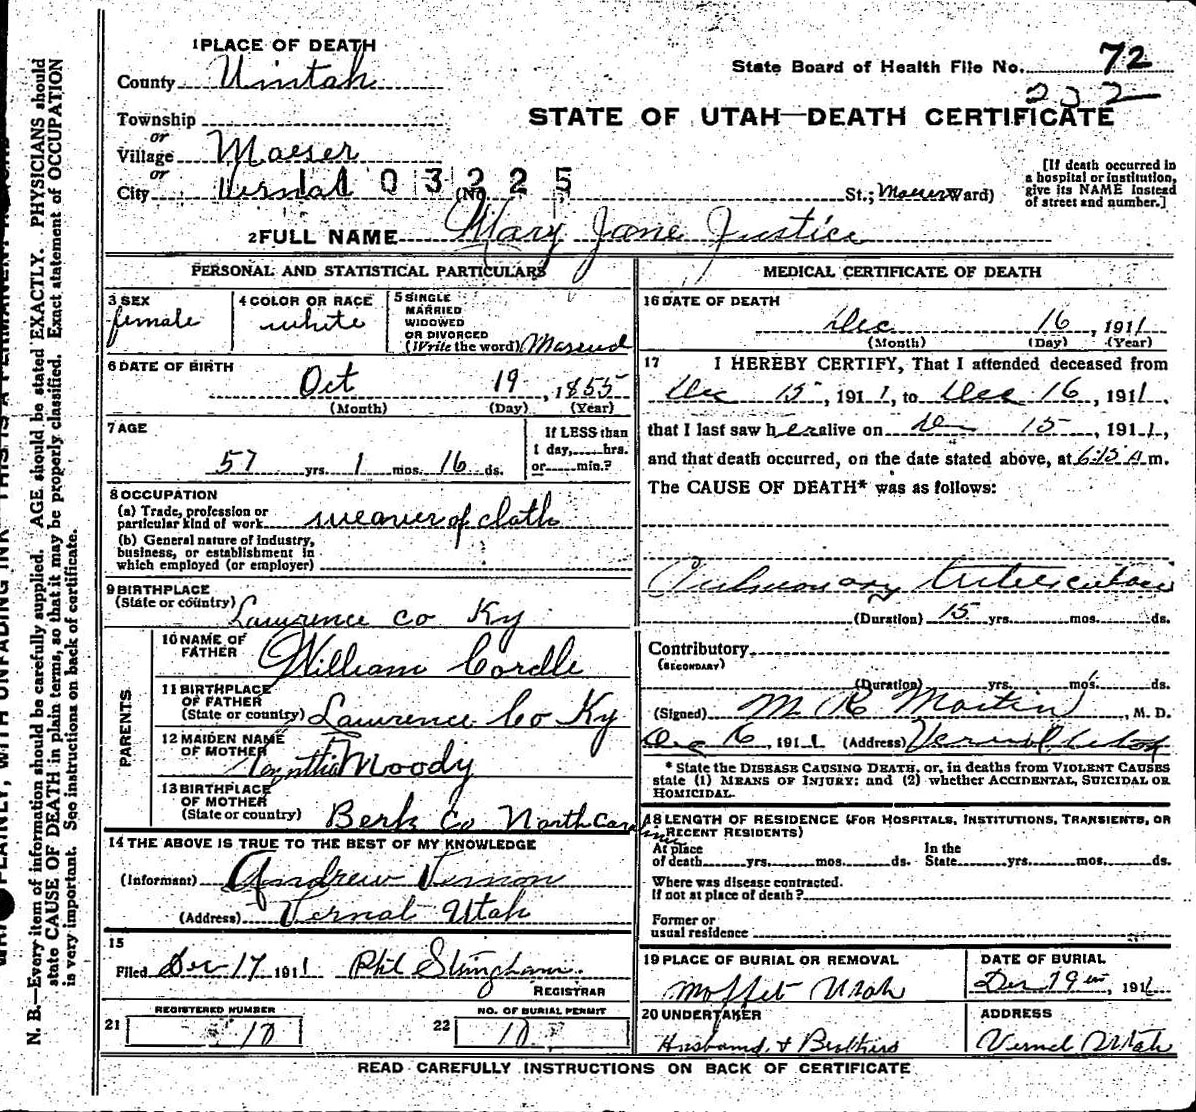 1 PLACE OF DEATH
County Uintah
State Board of Health File No. 72
232
STATE OF UTAH—DEATH CERTIFICATE
Township
or
Village Maeser
or
City Vernal (No. St.; Maeser Ward)
1103225
[If death occurred in
a hospital or institution,
give its NAME instead
of street and number.]
2 FULL NAME Mary Jane Justice
PERSONAL AND STATISTICAL PARTICULARS
3 SEX
female
4 COLOR OR RACE
white
5 SINGLE
MARRIED
WIDOWED
OR DIVORCED
(Write the word) Married
6 DATE OF BIRTH
Oct 19, 1855
(Month) (Day) (Year)
7 AGE
57 yrs. 1 mos. 16 ds.
If LESS than
1 day, hrs.
or min.?
8 OCCUPATION
(a) Trade, profession or
particular kind of work weaver of cloth
(b) General nature of industry,
business, or establishment in
which employed (or employer)
9 BIRTHPLACE
(State or country) Lawrence co Ky
PARENTS
10 NAME OF
FATHER William Cordle
11 BIRTHPLACE
OF FATHER
(State or country) Lawrence Co Ky
12 MAIDEN NAME
OF MOTHER Moody
13 BIRTHPLACE
OF MOTHER
(State or country) Berk Co North Carolina
14 THE ABOVE IS TRUE TO THE BEST OF MY KNOWLEDGE
(Informant) Andrew Vernon
(Address) Vernal Utah
15
Filed Dec 17 1911 Phil Stringham.
REGISTRAR
REGISTERED NUMBER
21 10
NO. OF BURIAL PERMIT
22 10
MEDICAL CERTIFICATE OF DEATH
16 DATE OF DEATH
Dec 16, 1911
(Month) (Day) (Year)
17 I HEREBY CERTIFY, That I attended deceased from
Dec 15, 1911, to Dec 16, 1911,
that I last saw her alive on Dec 15, 1911,
and that death occurred, on the date stated above, at 6:15 A m.
The CAUSE OF DEATH* was as follows:
Pulmonary tuberculosis
(Duration) 15 yrs. mos. ds.
Contributory
(SECONDARY)
(Duration) yrs. mos. ds.
(Signed) M. D.
Dec 16, 1911 (Address) Vernal Utah
* State the DISEASE CAUSING DEATH, or, in deaths from VIOLENT CAUSES
state (1) MEANS OF INJURY; and (2) whether ACCIDENTAL, SUICIDAL OR
HOMICIDAL.
18 LENGTH OF RESIDENCE (FOR HOSPITALS, INSTITUTIONS, TRANSIENTS, OR
RECENT RESIDENTS)
At place
of death yrs. mos. ds.
In the
State yrs. mos. ds.
Where was disease contracted.
if not at place of death?
Former or
usual residence
19 PLACE OF BURIAL OR REMOVAL
Moffet Utah
DATE OF BURIAL
Dec 19, 1911
20 UNDERTAKER
Husband & Brothers
ADDRESS
Vernal Utah
READ CAREFULLY INSTRUCTIONS ON BACK OF CERTIFICATE
N. B.—Every item of information should be carefully supplied. AGE should be stated EXACTLY. PHYSICIANS should
state CAUSE OF DEATH in plain terms, so that it may be properly classified. Exact statement of OCCUPATION
is very important. See instructions on back of certificate.